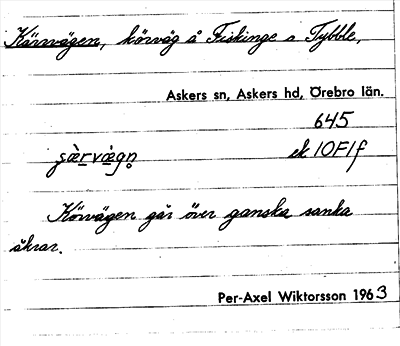 Körvägen, körväg å Fiskinge o Tybble,
Askers sn, Askers hd, Örebro län.
645
ek 10F1f
Körvägen går över ganska sanka
åkrar.
Per-Axel Wiktorsson 1963